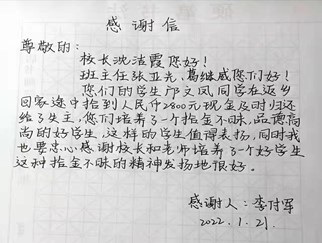 感谢信
尊敬的:
校长沈洁霞您好!
班主任张亚光,葛继威您们好!
您们的学生邝文凤同学在返乡
回家途中拾到人民币2800元现金及时归还
给了失主,您们培养了一个拾金不昧,品德高
尚的好学生,这样的学生值得表扬,同时我
也要忠心感谢校长和老师培养了一个好学生
这种拾金不昧的精神发扬地很好。
感谢人:李付军
2022.1.21.